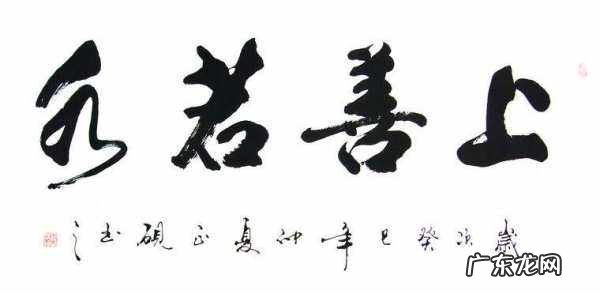 上善若水
歲次癸巳年仲夏正硯书之
广东龙网